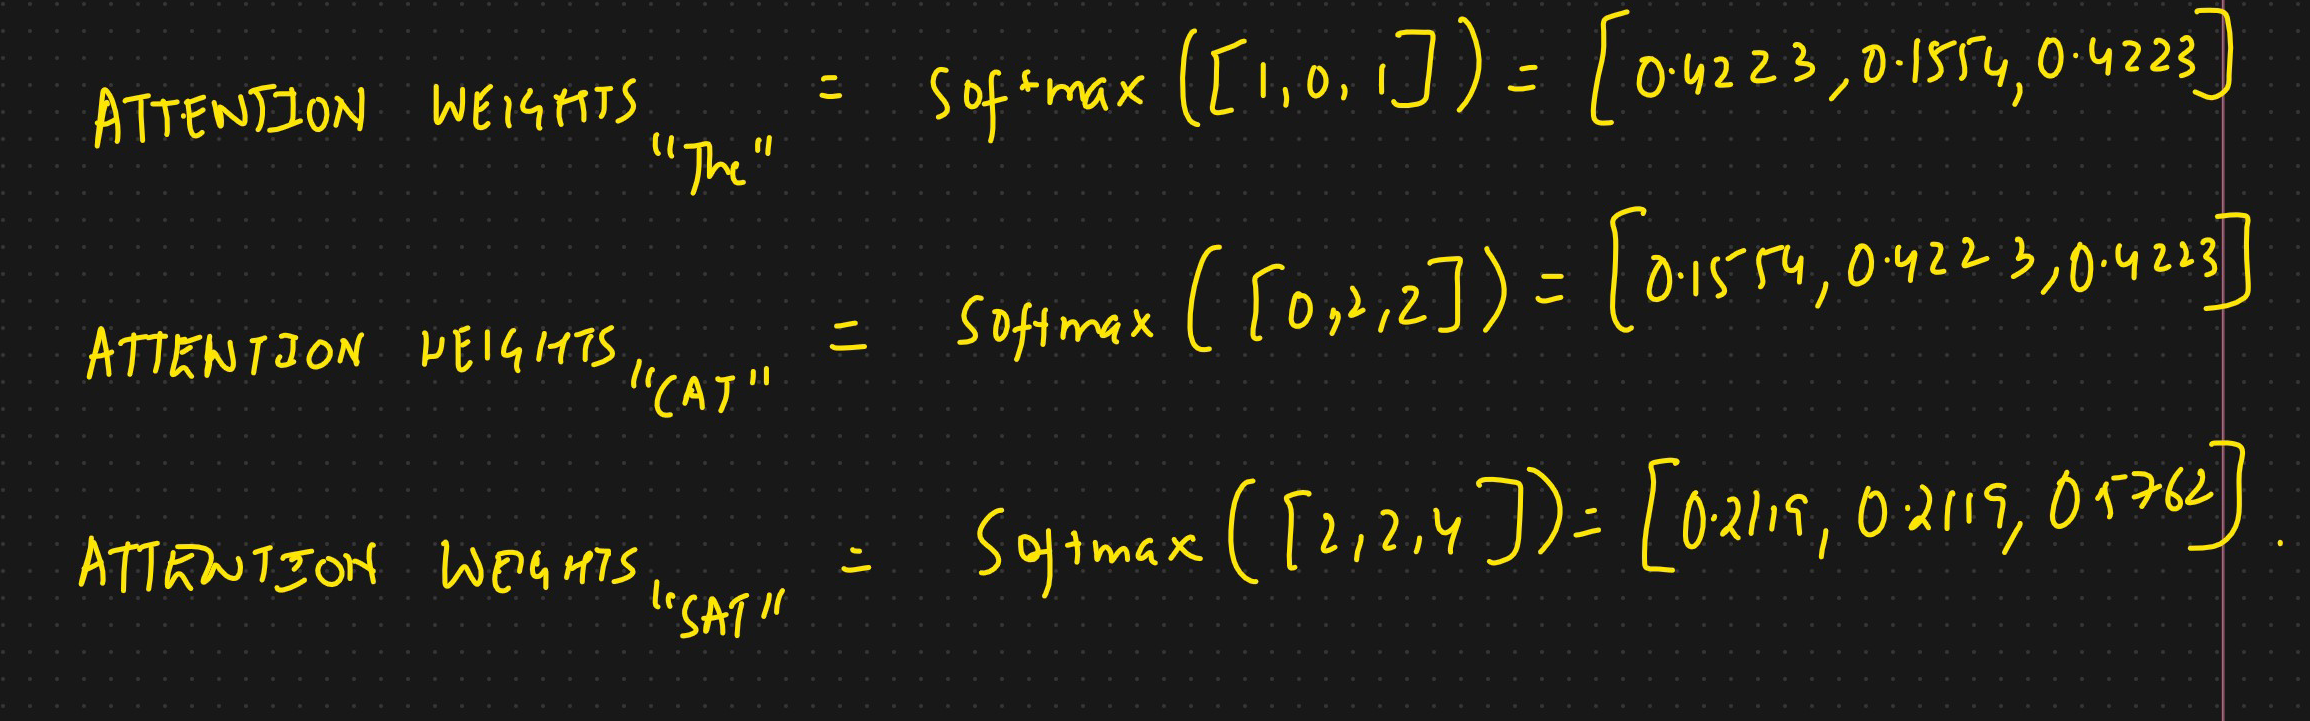 ATTENTION WEIGHTS "The" = Softmax ([1, 0, 1]) = [0.4223, 0.1554, 0.4223]
ATTENTION WEIGHTS "CAT" = Softmax ([0, 2, 2]) = [0.1554, 0.4223, 0.4223]
ATTENTION WEIGHTS "SAT" = Softmax ([2, 2, 4]) = [0.2119, 0.2119, 0.5762].